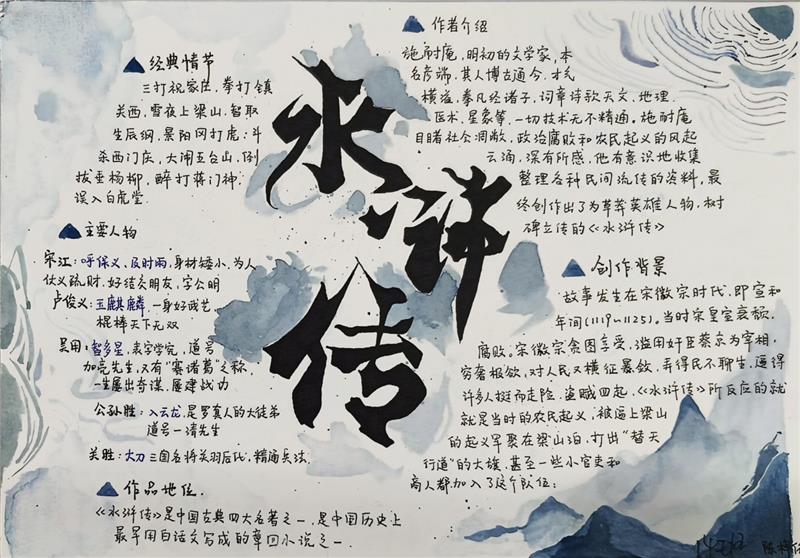 水浒传
经典情节
三打祝家庄，拳打镇
关西，雪夜上梁山，智取
生辰纲，景阳冈打虎；斗
杀西门庆，大闹五台山，倒
拔垂杨柳，醉打蒋门神，
误入白虎堂．
主要人物
宋江：呼保义、及时雨，身材矮小、为人
仗义疏财、好结交朋友，字公明
卢俊义：玉麒麟，一身好武艺，
棍棒天下无双
吴用：智多星，表字学究，道号
加亮先生，又有“赛诸葛”之称，
一生屡出奇谋，屡建战功
公孙胜：入云龙，是罗真人的大徒弟
道号一清先生
关胜：大刀 三国名将关羽后代，精通兵法．
作品地位．
《水浒传》是中国古典四大名著之一，是中国历史上
最早用白话文写成的章回小说之一
作者介绍
施耐庵，明初的文学家，本
名彦端，其人博古通今，才气
横溢，举凡经诸子，词章诗歌天文、地理．
医术、星象等，一切技术无不精通。施耐庵
目睹社会凋敝，政治腐败和农民起义的风起
云涌，深有所感，他有意识地收集
整理各种民间流传的资料，最
终创作出了为草莽英雄人物，树
碑立传的《水浒传》
创作背景
故事发生在宋徽宗时代，即宣和
年间(1119~1125)。当时宋皇室衰颓．
腐败。宋徽宗贪图享受，滥用奸臣蔡京为宰相，
穷奢极欲，对人民又横征暴敛，弄得民不聊生，逼得
许多人铤而走险，盗贼四起，《水浒传》所反应的就
就是当时的农民起义，被逼上梁山
的起义军聚在梁山泊，打出“替天
行道”的大旗，甚至一些小官吏和
商人都加入了这个队伍；